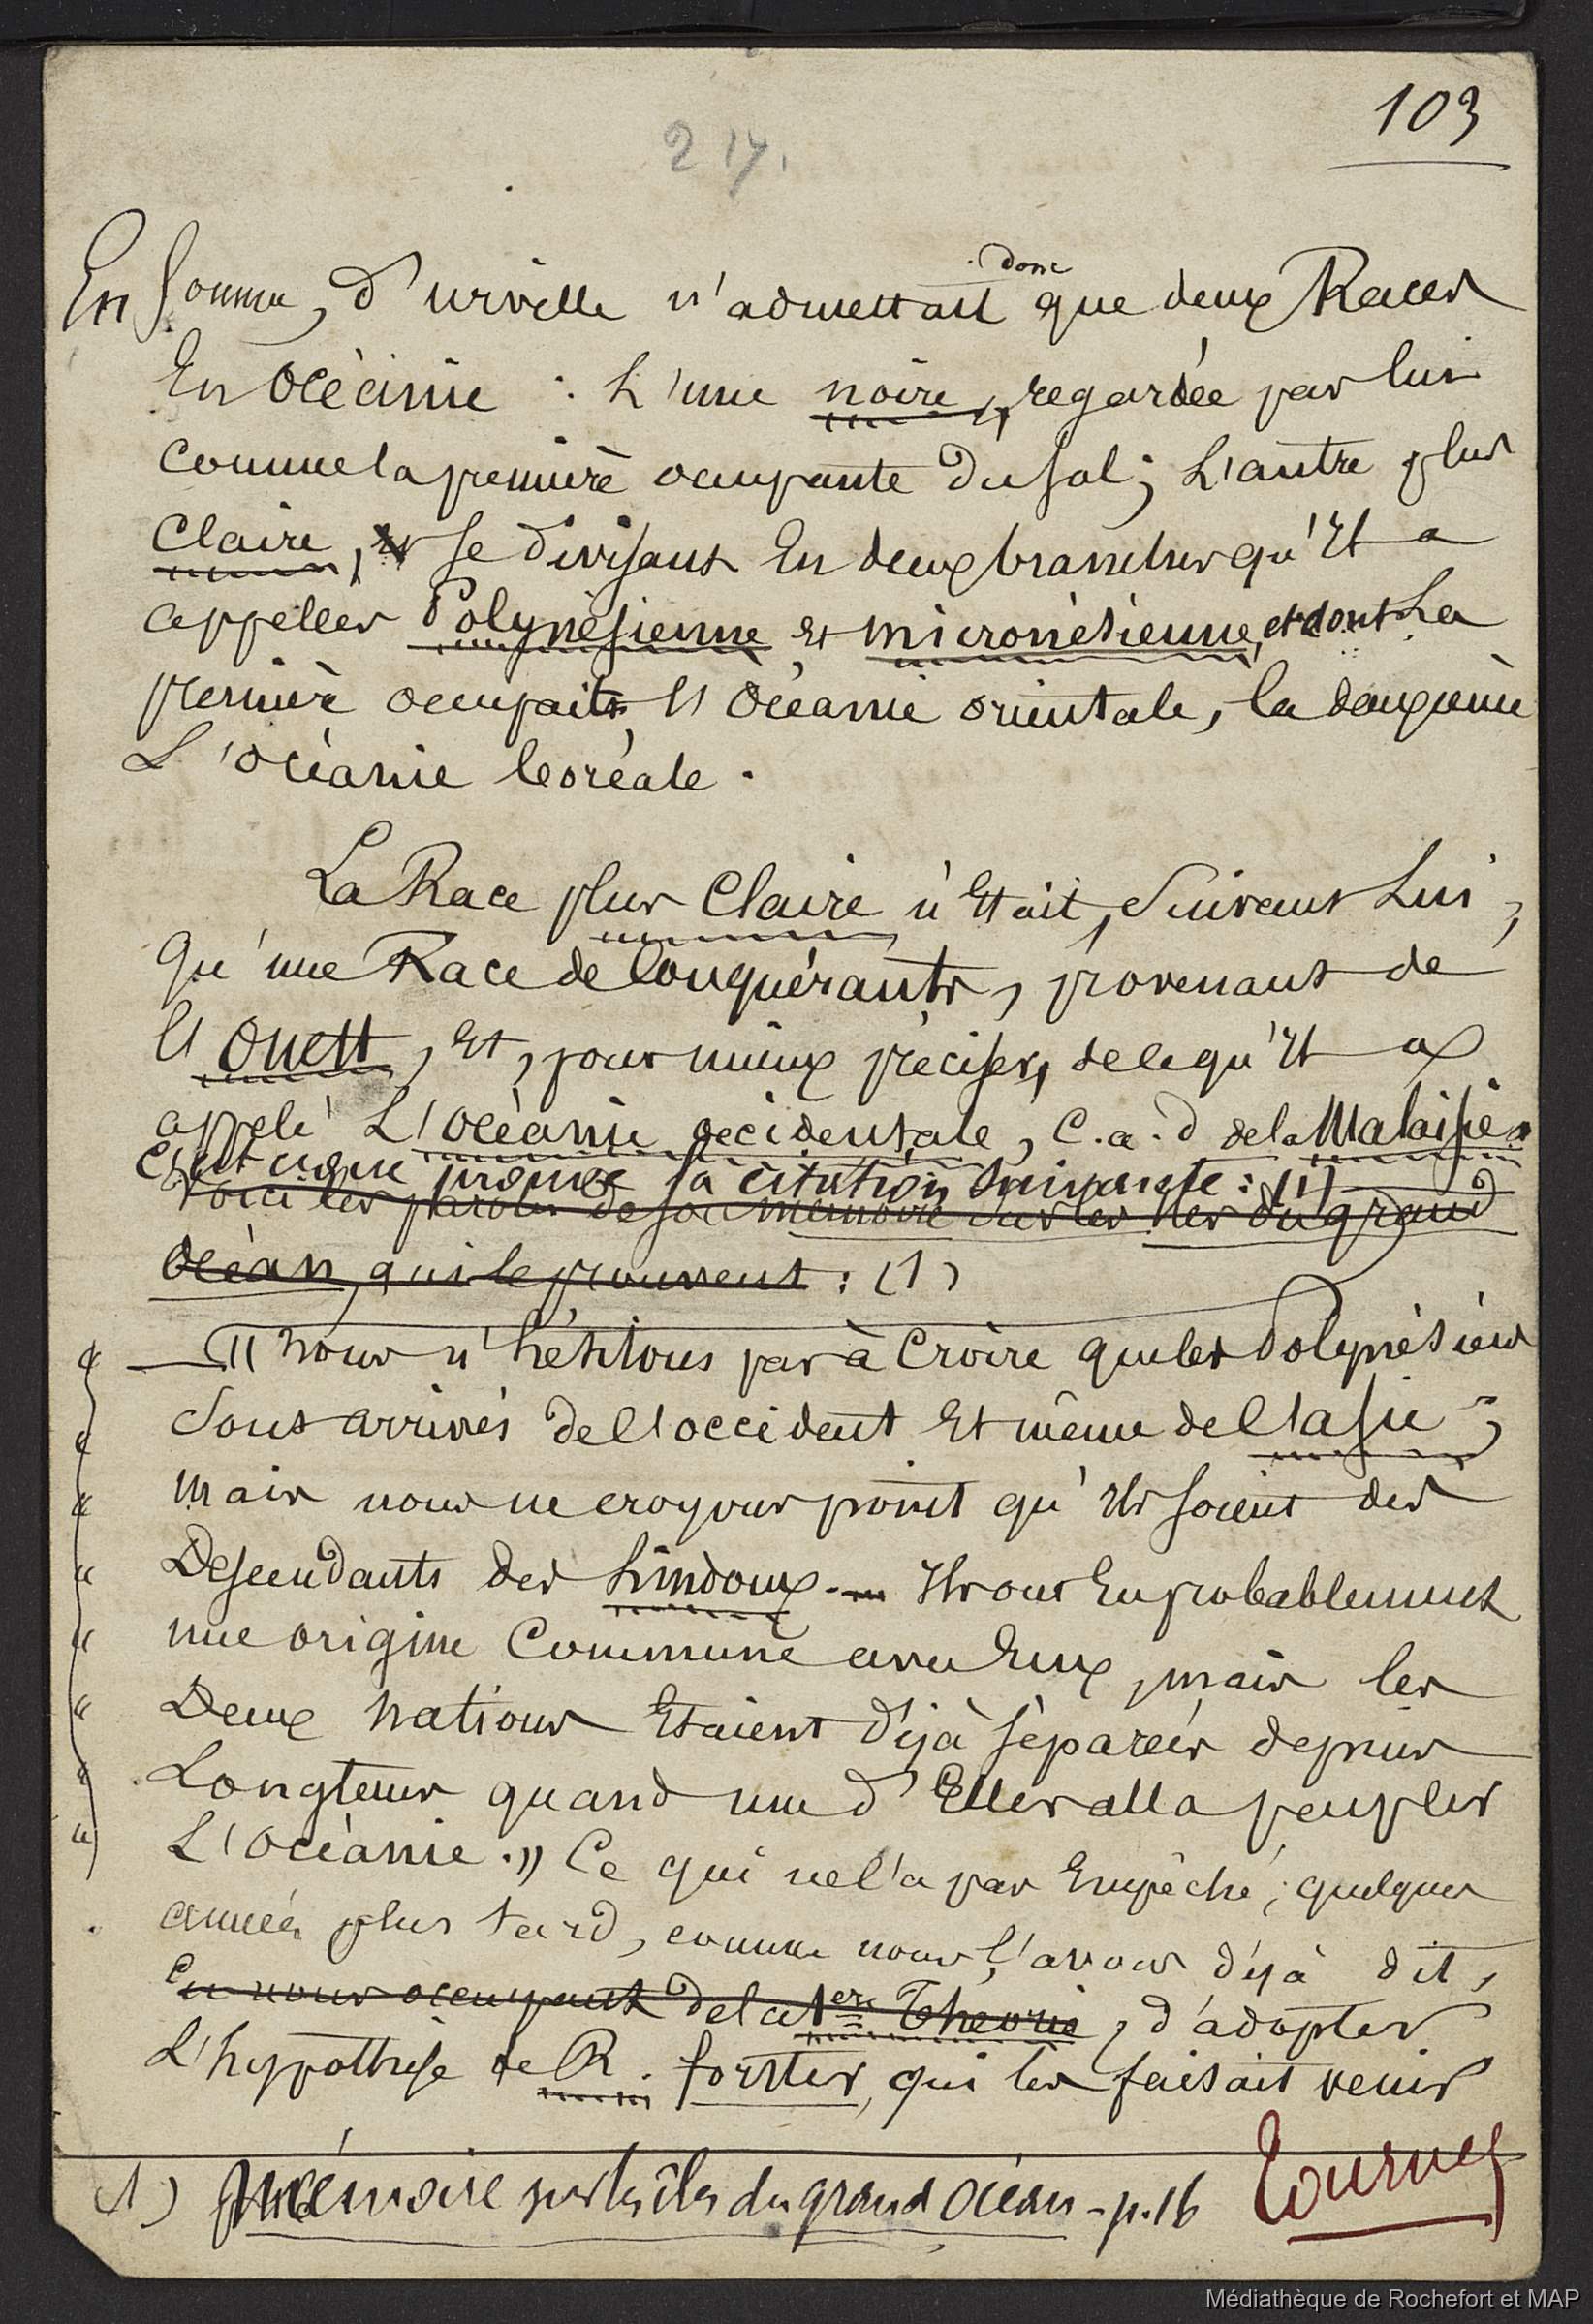 103
217.
donc
En somme, d'urville n'admettait que deux Races
En océanie : L'une noire, regardée par lui
comme la première occupante du sol ; L'autre plus
claire, se divisant En deux branches qu'il a
appelées Polynésienne et micronésienne, et dont La
première occupait l'océanie orientale, la deuxième
L'océanie boréale.
La Race plus Claire n'était, suivant Lui,
qu'une Race de Conquérants, provenant de
l'ouest, Et, pour mieux préciser, de ce qu'il a
appelé L'océanie occidentale, c.a.d de la Malaisie.
C'est ce que prouve la citation suivante : (1)
Voici les paroles de son mémoire sur les îles du grand
océan, qui le prouvent : (1)
"nous n'hésitons pas à Croire que les Polynésiens
sont arrivés de l'occident Et même de l'asie ;
mais nous ne croyons point qu'ils soient des
Descendants des hindoux. Ils ont Eu probablement
une origine Commune avec Eux, mais les
Deux nations Etaient déjà séparées depuis
Longtems quand une d'Elles alla peupler
L'océanie." Ce qui ne l'a pas Empêché, quelques
années plus tard, comme nous l'avons déjà dit,
En nous occupant de la 1ere Théorie, d'adopter
L'hypothèse de R. forster, qui les faisait venir
(1) Mémoire sur les îles du grand océan - p. 16
Tournez
Médiathèque de Rochefort et MAP